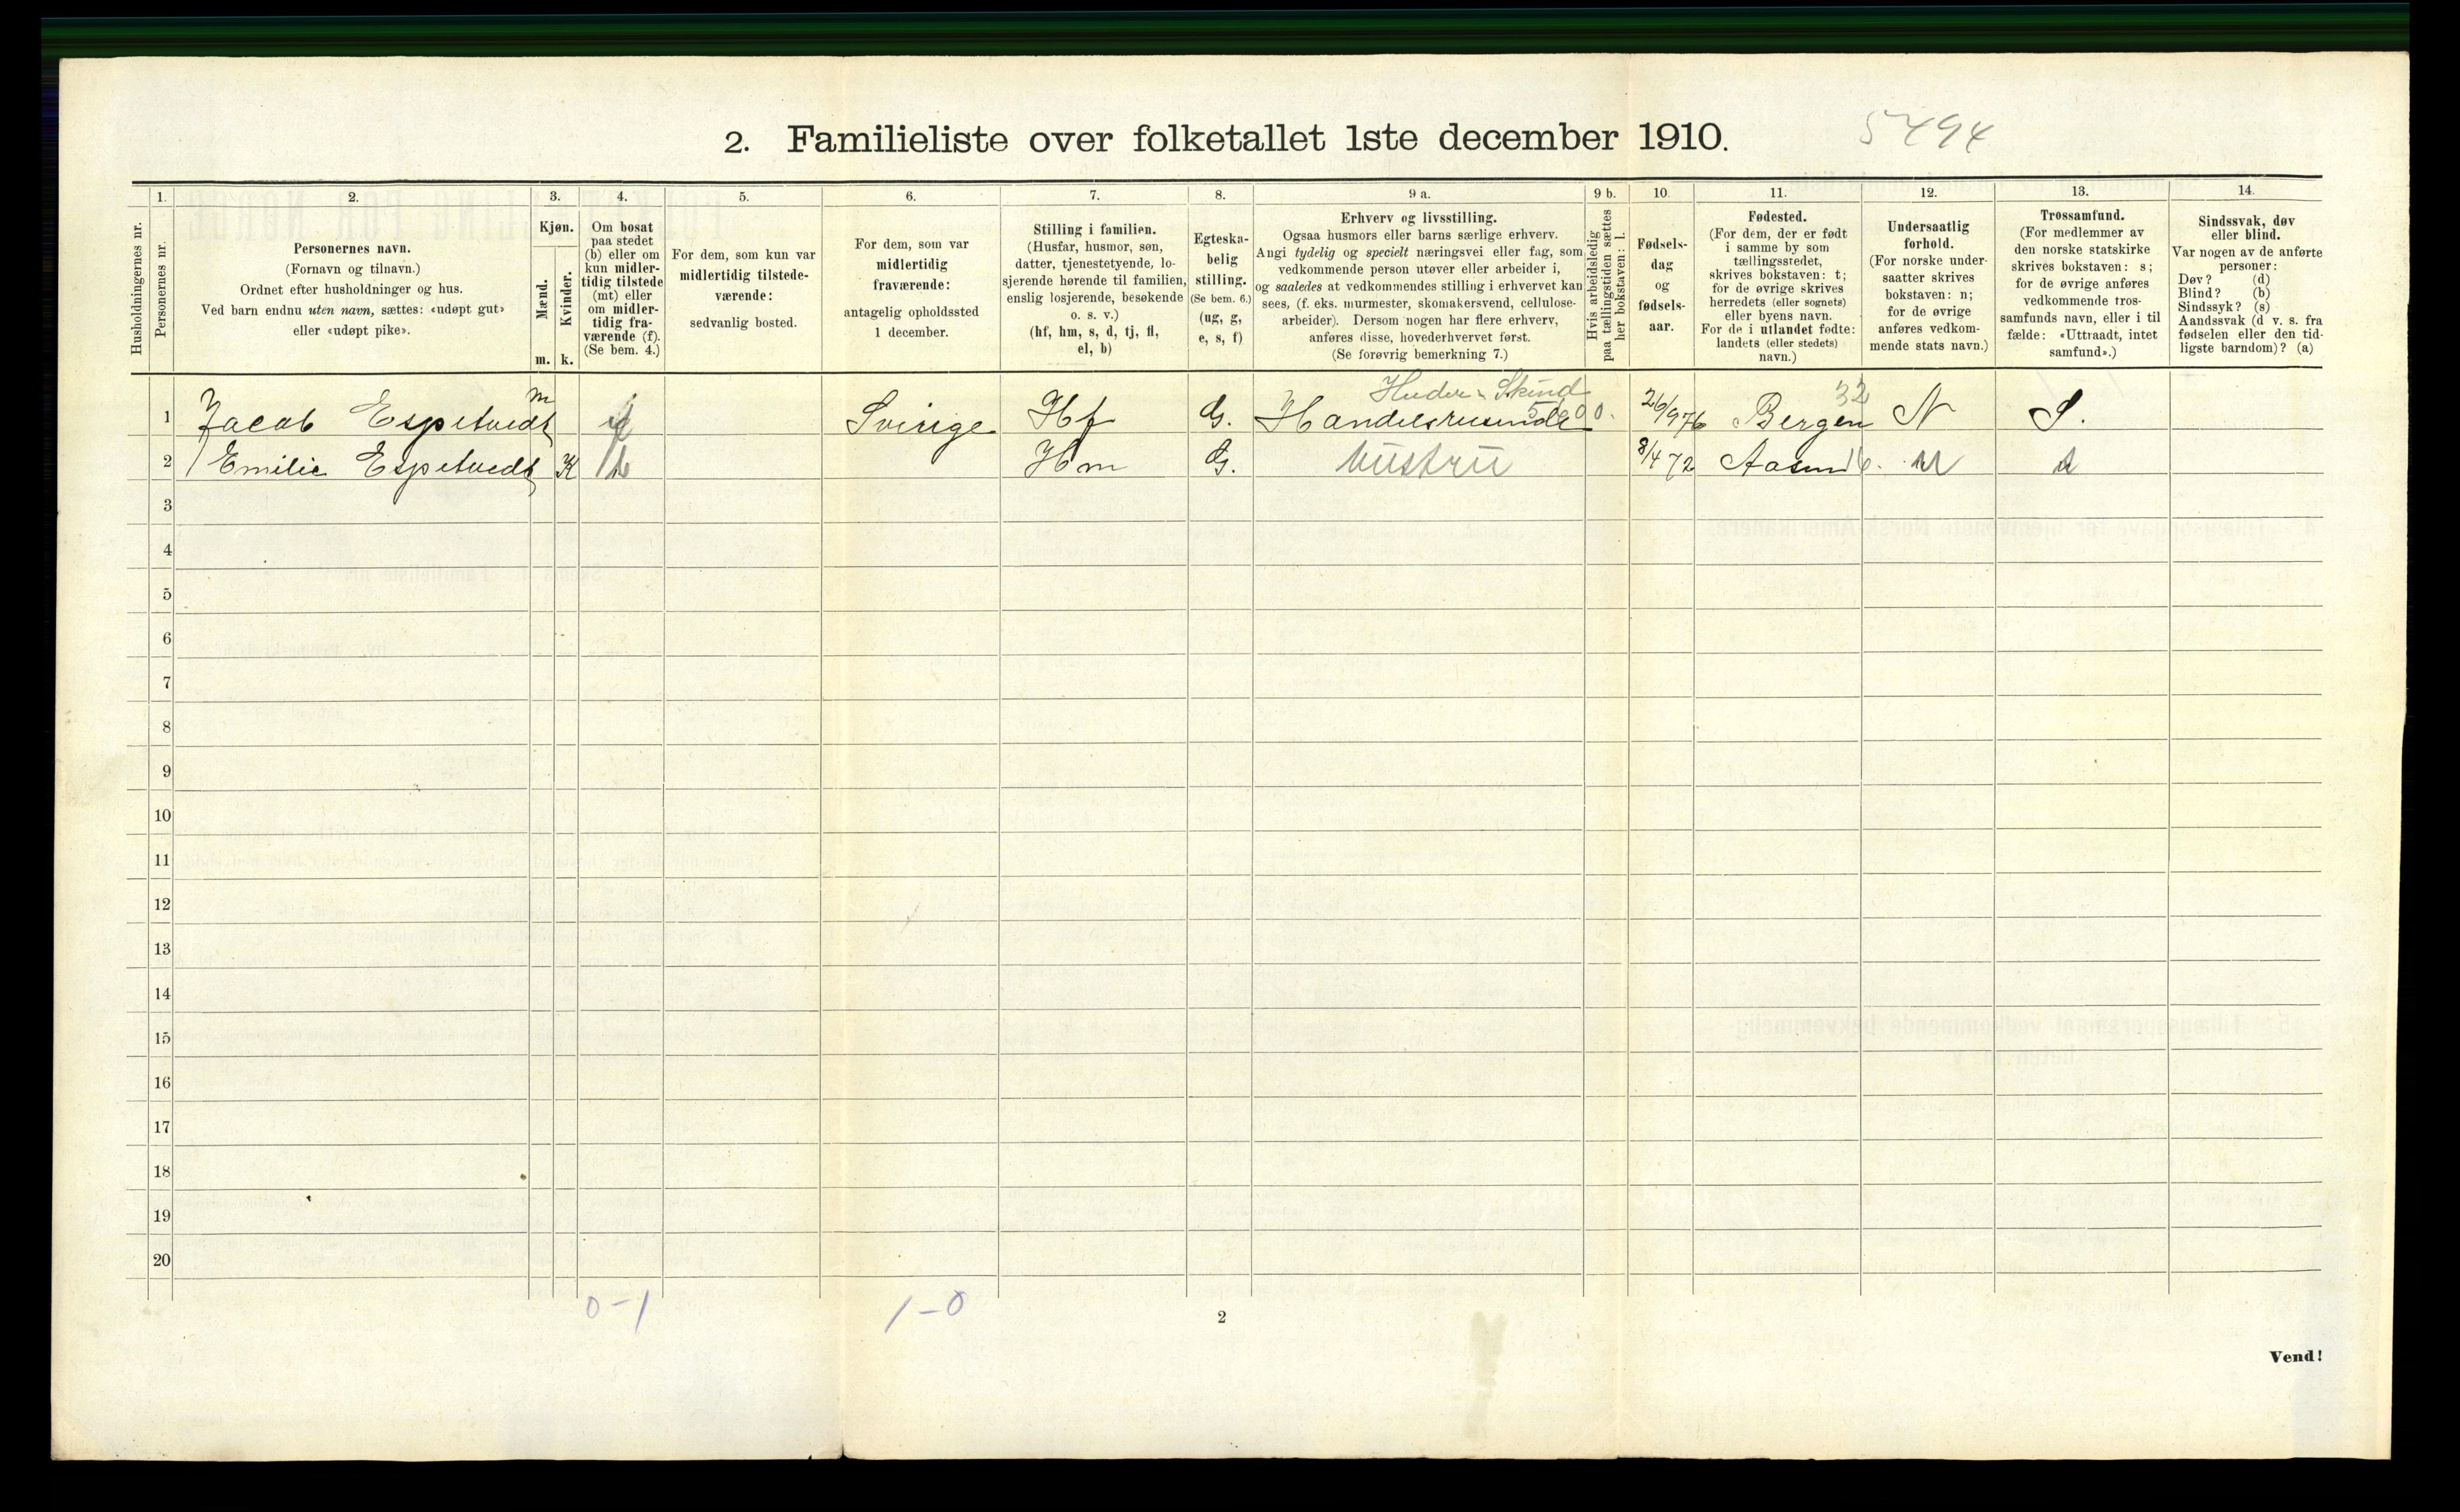 2. Familieliste over folketallet 1ste december 1910.
5494
Husholdningernes nr.
1.
Personernes nr.
2.
Personernes navn.
(Fornavn og tilnavn.)
Ordnet efter husholdninger og hus.
Ved barn endnu uten navn, sættes: «udøpt gut»
eller «udøpt pike».
3.
Kjøn.
Mænd.
Kvinder.
m. k.
4.
Om bosat
paa stedet
(b) eller om
kun midler-
tidig tilstede
(mt) eller
om midler-
tidig fra-
værende (f).
(Se bem. 4.)
5.
For dem, som kun var
midlertidig tilstede-
værende:
sedvanlig bosted.
6.
For dem, som var
midlertidig
fraværende:
antagelig opholdssted
1 december.
7.
Stilling i familien.
(Husfar, husmor, søn,
datter, tjenestetyende, lo-
sjerende hørende til familien,
enslig losjerende, besøkende
o. s. v.)
(hf, hm, s, d, tj, fl,
el, b)
8.
Egteska-
belig
stilling.
(Se bem. 6.)
(ug, g,
e, s, f)
9 a.
Erhverv og livsstilling.
Ogsaa husmors eller barns særlige erhverv.
Angi tydelig og specielt næringsvei eller fag, som
vedkommende person utøver eller arbeider i,
og saaledes at vedkommendes stilling i erhvervet kan
sees, (f. eks. murmester, skomakersvend, cellulose-
arbeider). Dersom nogen har flere erhverv,
anføres disse, hovederhvervet først.
(Se forøvrig bemerkning 7.)
9 b.
Hvis arbeidsledig
paa tællingstiden sættes
her bokstaven: l.
10.
Fødsels-
dag
og
fødsels-
aar.
11.
Fødested.
(For dem, der er født
i samme by som
tællingsstedet,
skrives bokstaven: t;
for de øvrige skrives
herredets (eller sognets)
eller byens navn.
For de i utlandet fødte:
landets (eller stedets)
navn.)
12.
Undersaatlig
forhold.
(For norske under-
saatter skrives
bokstaven: n;
for de øvrige
anføres vedkom-
mende stats navn.)
13.
Trossamfund.
(For medlemmer av
den norske statskirke
skrives bokstaven: s;
for de øvrige anføres
vedkommende tros-
samfunds navn, eller i til
fælde: «Uttraadt, intet
samfund».)
14.
Sindssvak, døv
eller blind.
Var nogen av de anførte
personer:
Døv? (d)
Blind? (b)
Sindssyk? (s)
Aandssvak (d v. s. fra
fødselen eller den tid-
ligste barndom)? (a)
Huder Skind 32
1 Jacob Espetvedt m f Sverige Hf G. Handelsreisende 26/9 76 Bergen N S.
2 Emilie Espetvedt K b Hm G. hustru 8/4 72 n s
3
4
5
6
7
8
9
10
11
12
13
14
15
16
17
18
19
20
0-1 1-0
2
Vend!